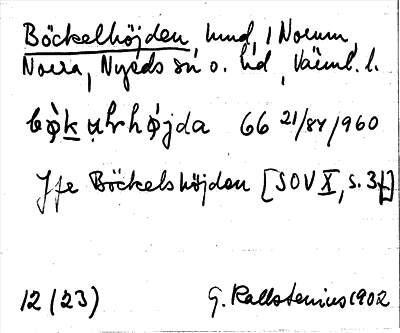 Böckelhöjden, hmd, i Norum,
Norra, Nyeds sn o. hd, Värml. l.
bø̀k u̯hrhǿjda 66 21/84/960
Jfe Böckelshöjden [SOV X, s. 3f]
12 (23) G. Kallstenius 1902